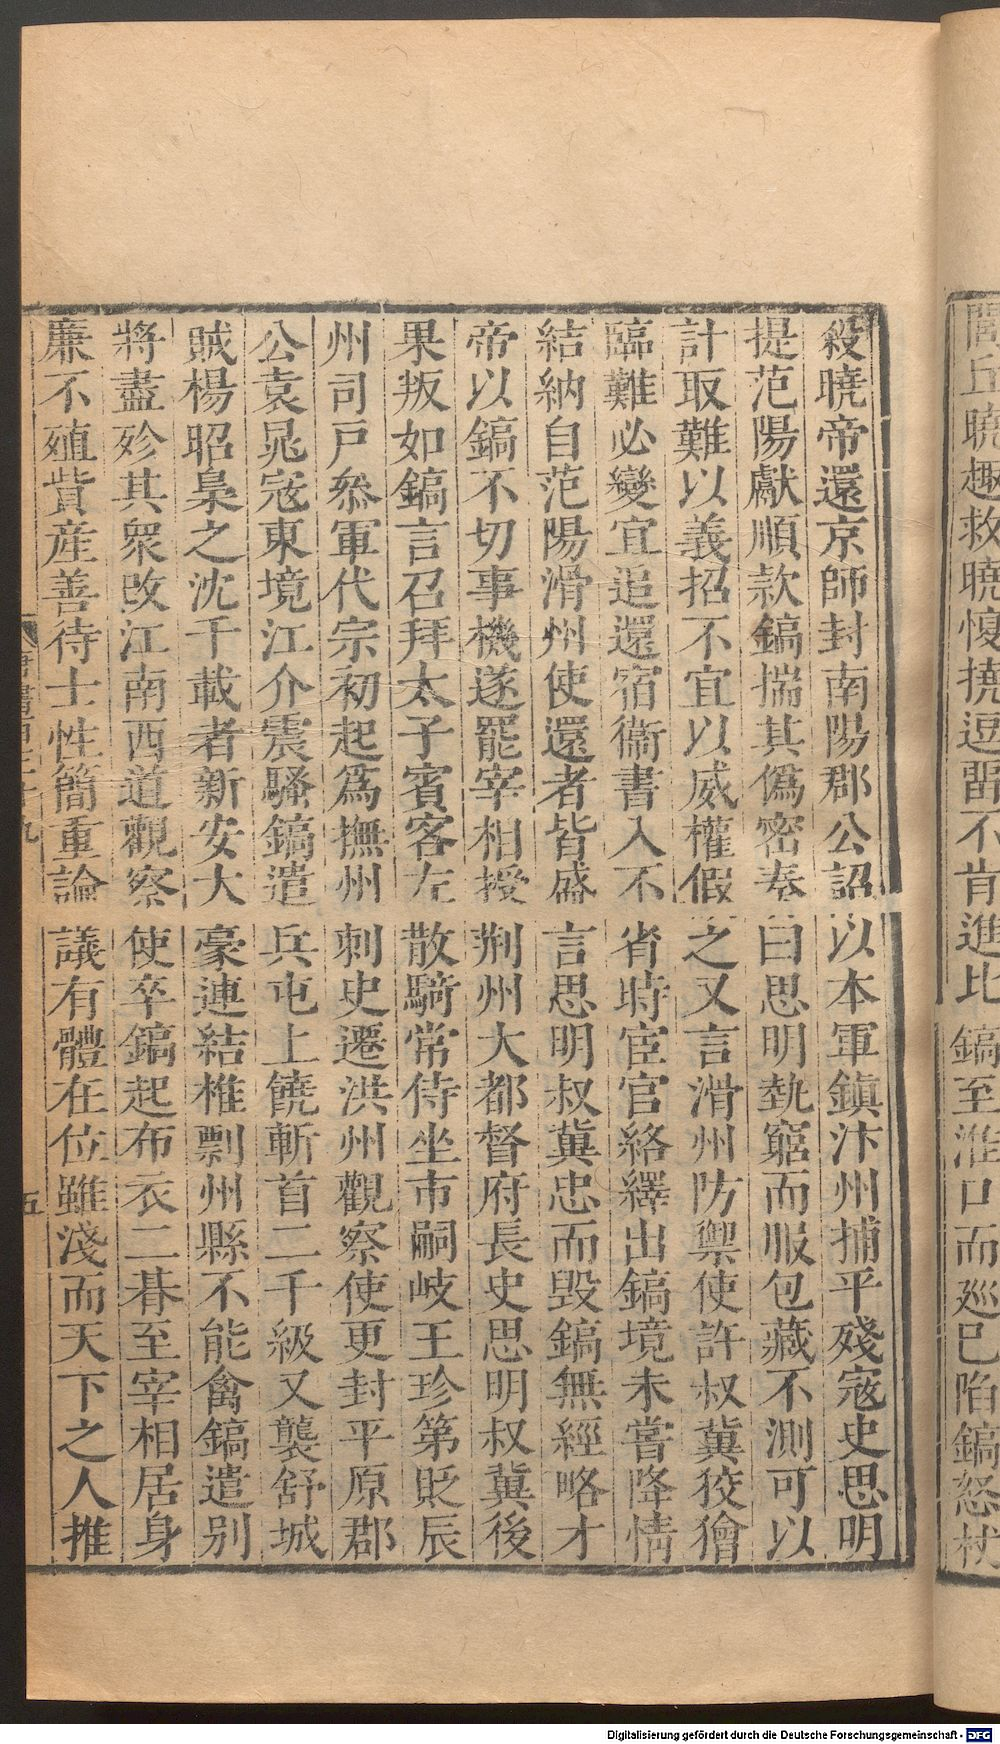 閭丘曉趣救曉愎撓逗畱不肯進比鎬至淮口而廵已陷鎬怒杖
殺曉帝還京師封南陽郡公詔以本軍鎮汴州捕平殘寇史思明
提范陽獻順款鎬揣其僞密奏曰思明埶窮而服包藏不測可以
計取難以義招不宜以威權假之又言滑州防禦使許叔冀狡獪
臨難必變宜追還宿衞書入不省時宦官絡繹出鎬境未嘗降情
結納自范陽滑州使還者皆盛言思明叔冀忠而毀鎬無經略才
帝以鎬不切事機遂罷宰相授荆州大都督府長史思明叔冀後
果叛如鎬言召拜太子賓客左散騎常侍坐市嗣岐王珍第貶辰
州司戸叅軍代宗初起爲撫州刺史遷洪州觀察使更封平原郡
公袁晁寇東境江介震騷鎬遣兵屯上饒斬首二千級又襲舒城
賊楊昭梟之沈千載者新安大豪連結椎剽州縣不能禽鎬遣别
將盡殄其衆改江南西道觀察使卒鎬起布衣二朞至宰相居身
廉不殖貲産善待士性簡重論議有體在位雖淺而天下之人推
五
Digitalisierung gefördert durch die Deutsche Forschungsgemeinschaft - DFG